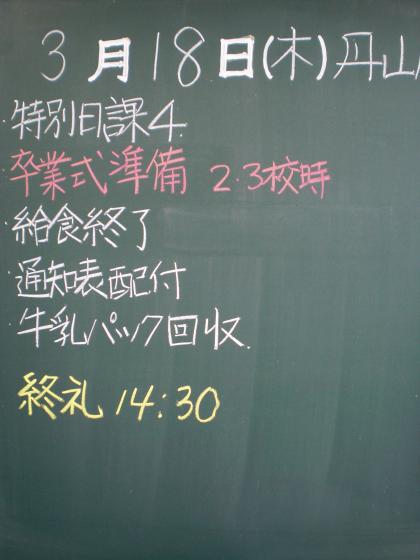 3月18日(木)丹山
特別日課4
卒業式準備 2.3校時
給食終了
通知表配付
牛乳パック回収
終礼 14:30